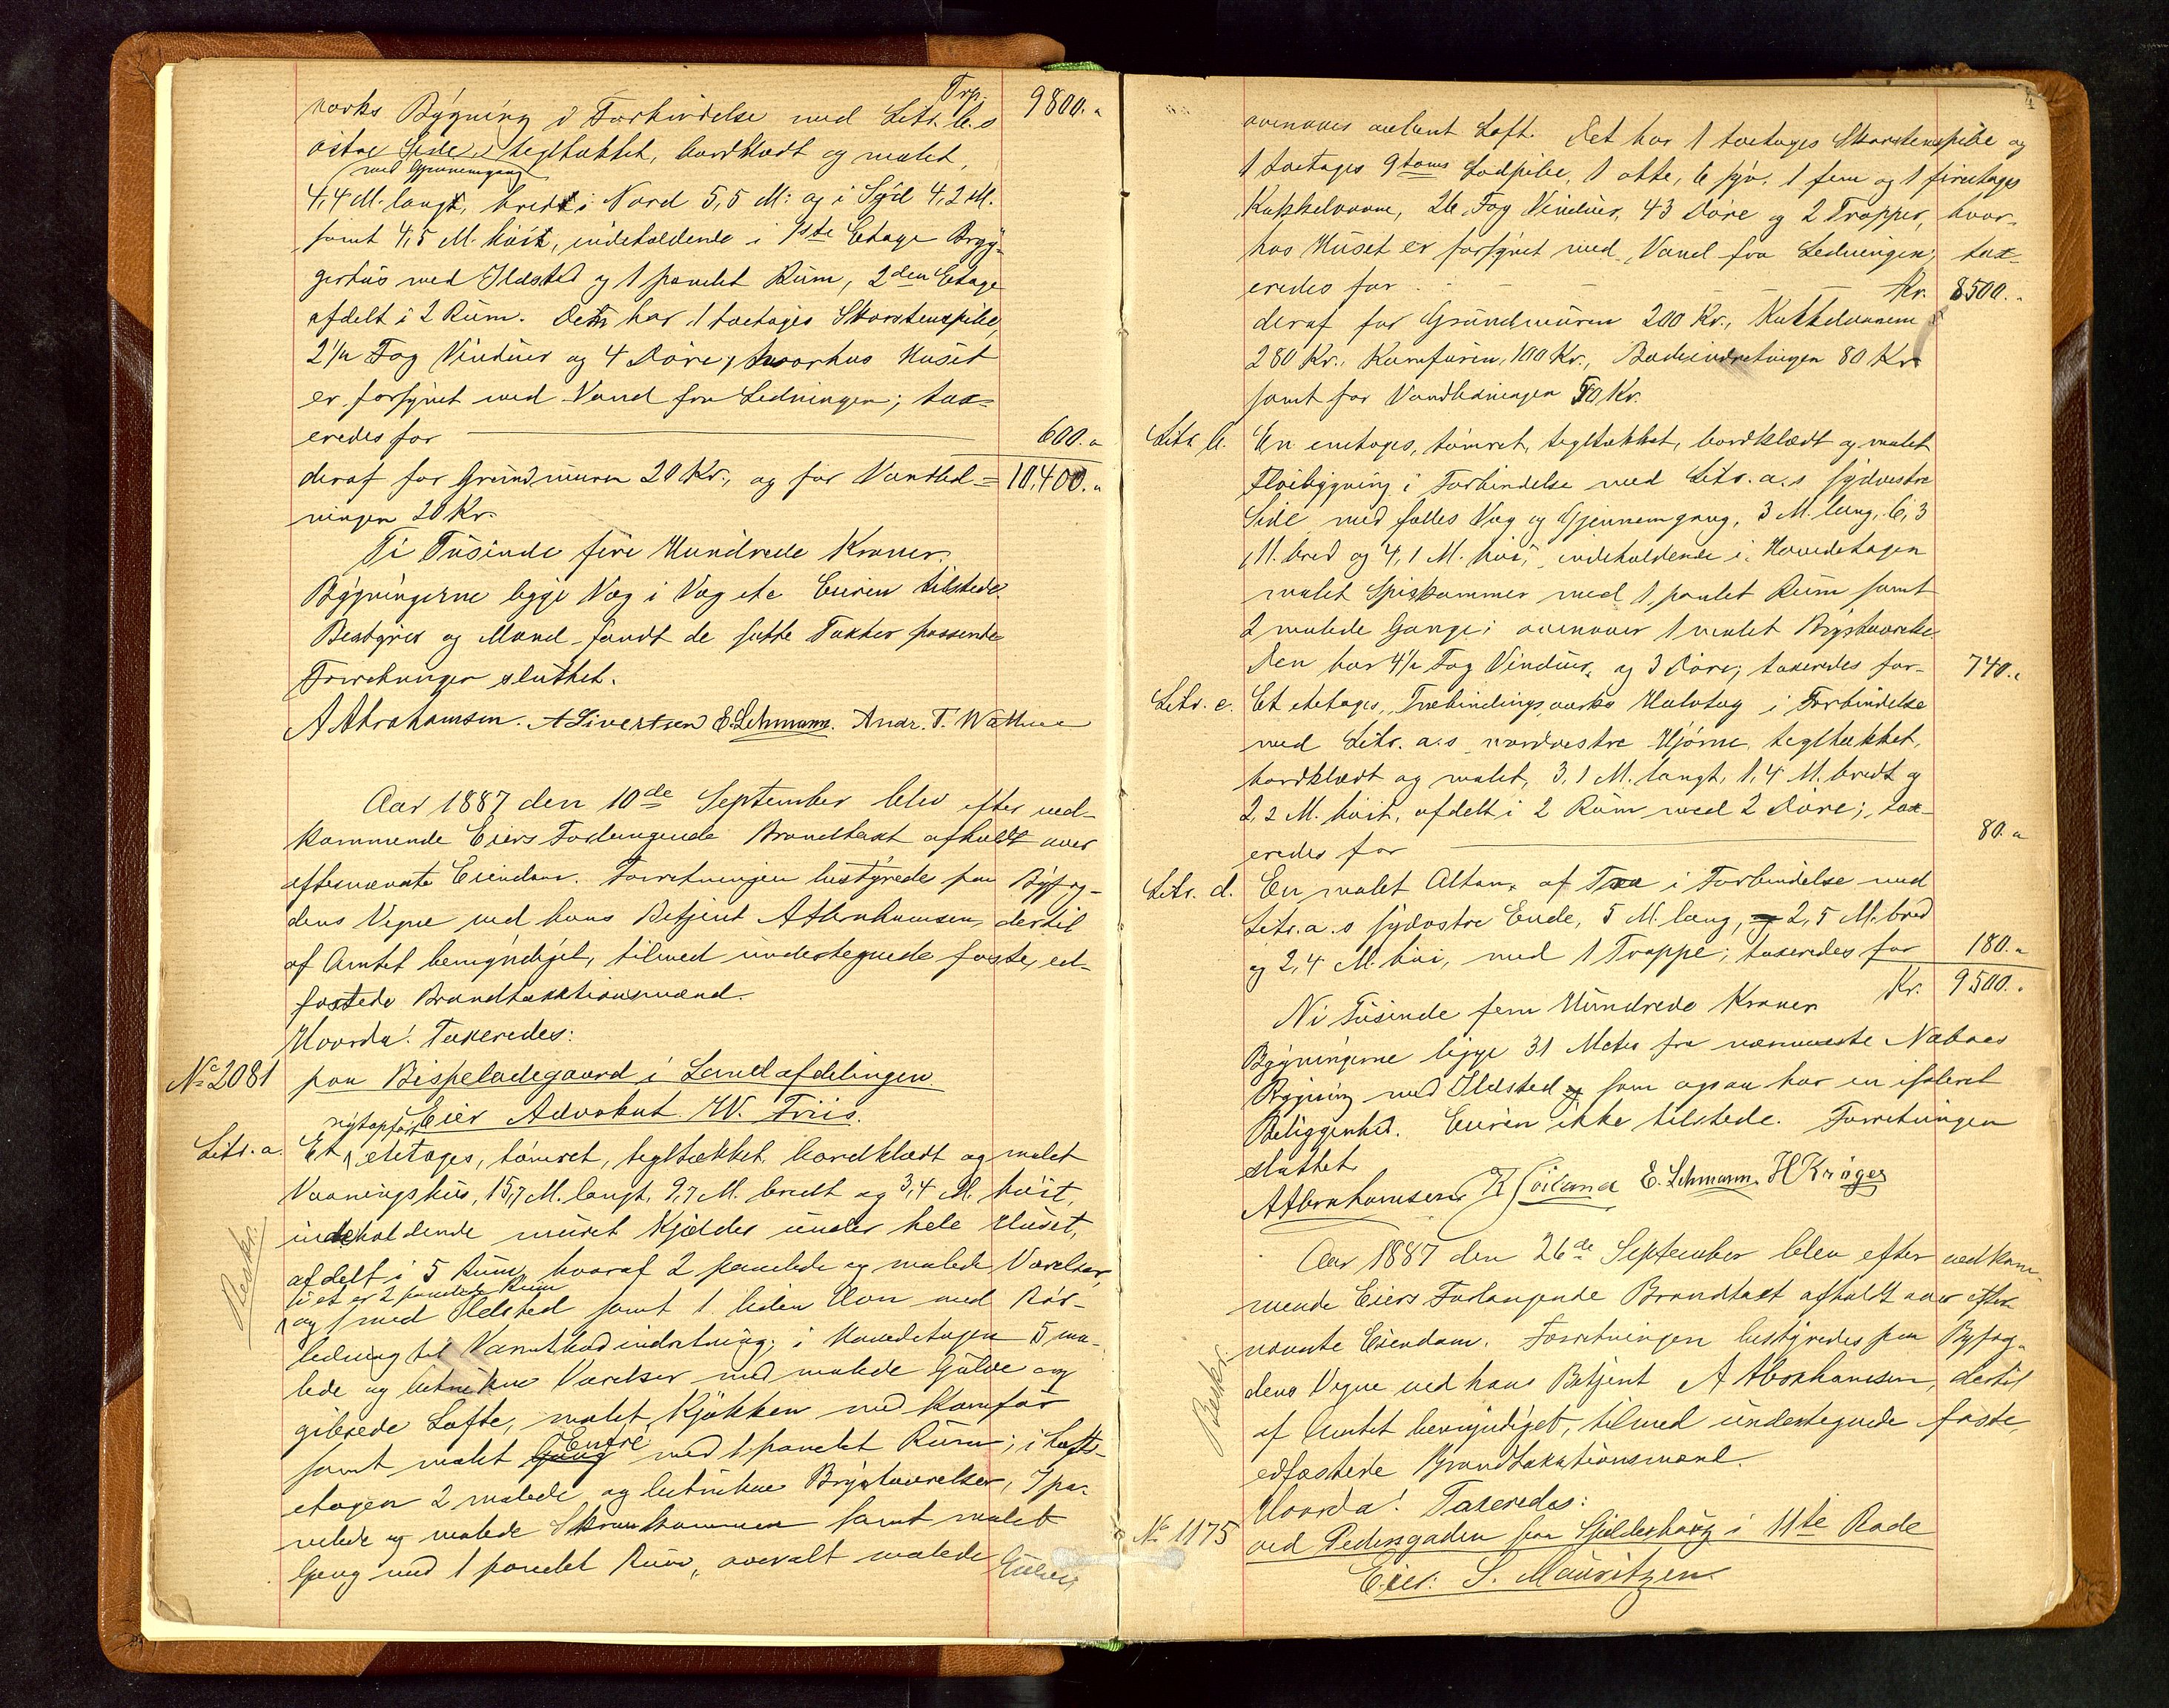 Trp. 9800.„
værks Bygning i Forbindelse med Litr. b.s
østre Side, tegltækket, bordklædt og malet,
med Gjennemgang
4,4 M. langt, bredt i Nord 5,5 M: og i Syd 4,2 M.
samt 4,5 M. høit, indeholdende i 1ste Etage Bryg-
gerhus med Ildsted og 1 panelet Rum, 2den Etage
afdelt i 2 Rum. Det har 1 toetages Skorstenspibe,
2 1/2 Fag Vinduer og 4 Døre, hvorhos Huset
er forsynet med Vand fra Ledningen; tax-
eredes for 600.„
deraf for Grundmuren 20 Kr., og for Vandled- 10,400.„
ningen 20 Kr.
Ti Tusinde fire Hundrede Kroner.
Bygningerne ligge Væg i Væg etc Eieren tilstede.
Bestyrer og Mænd fandt de satte Takster passende
Forretningen sluttet.
A Abrahamsen. A Sivertsen E. Lehmann. Andr. T. Wathne
Aar 1887 den 10de September blev efter ved-
kommende Eiers Forlangende Brandtaxt afholdt over
eftersnævnte Eiendom. Forretningen bestyredes paa Byfog-
dens Vegne ved hans Betjent A Abrahamsen, dertil
af Amtet bemyndiget, tilmed undertegnede faste, ed-
fæstede Brandtaxtionsmænd.
Hvorda! Taxeredes:
No 2081 paa Bispeladegaard i Landafdelingen
Eier Advokat W. Friis.
nytopført
Litr. a. Et etetages, tømret, tegltækket, bordklædt og malet
Vaaningshus, 15,7 M. langt, 9,7 M. bredt og 3,4 M. høit,
indeholdende muret Kjælder under hele Huset,
Beskr.
afdelt i 5 Rum, hvoraf 2 panelede og malede Værelser,
i et er 2 panelede Rum
og 1 med Ildsted samt 1 liden Ovn med Rør-
ledning til Varmtbadindretning; i Hovedetagen 5 ma-
lede og betrukne Værelser med malede Gulve og
gibsede Lofte, malet Kjøkken med Komfur
Entré
samt malet Gang med 1 panelet Rum; i Lofts-
etagen 2 malede og betrukne Brystværelser, 7 pa-
nelede og malede Skraakammere samt malet
Gang med 1 panelet Rum, overalt malede Gulve
ovenover aabent Loft. Det har 1 toetages Skorstenspibe og
1 toetages 9toms Lodpibe, 1 otte, 6 syv, 1 fem og 1 fireetages
Kakkelovne, 26 Fag Vinduer, 43 Døre og 2 Trapper, hvor-
hos Huset er forsynet med Vand fra Ledningen; tax-
eredes for Kr. 8500.„
deraf for Grundmuren 200 Kr., Kakkelovnene
280 Kr., Komfuren, 100 Kr., Badeindretningen 80 Kr.
samt for Vandledningen 50 Kr.
Litr. b. En enetages, tømret, tegltækket, bordklædt og malet
Fløibygning i Forbindelse med Litr. a.s sydvestre
Side med fælles Væg og Gjennemgang, 3 M. lang, 6,3
M. bred og 4,1 M. høi, indeholdende i Hovedetagen
malet Spiskammer med 1 panlet Rum samt
2 malede Gange; ovenover 1 malet Brystværelse
Den har 4 1/2 Fag Vinduer, og 3 Døre; taxeredes for 740.„
Litr. c. Et etetages, Træbindingsværks Halvtag i Forbindelse
med Litr. a.s nordvestre Hjørne, tegltækket,
bordklædt og malet, 3,1 M. langt, 1,4 M. bredt og
2,2 M. høit, afdelt i 2 Rum med 2 Døre; tax-
eredes for 80.„
Litr. d. En malet Altan, af Træ i Forbindelse med
Litr. a.s sydøstre Ende, 5 M. lang, og 2,5 M. bred
og 2,4 M. høi, med 1 Trappe; taxeredes for 180.„
Kr. 9500.„
Ni Tusinde fem Hundrede Kroner
Bygningerne ligge 31 Meter fra nærmeste Naboes
Bygning med Ildsted og som ogsaa har en isoleret
Beliggenhed. Eieren ikke tilstede. Forretningen
sluttet
A Abrahamsen. E. Lehmann. H Krøger
Aar 1887 den 26de September blev efter vedkom-
mende Eiers Forlangende Brandtaxt afholdt over efter
nævnte Eiendom. Forretningen bestyredes paa Byfog-
Beskr.
dens Vegne ved hans Betjent A Abrahamsen, dertil
af Amtet bemyndiget, tilmed undertegnede faste,
edfæstede Brandtaxationsmænd.
Hvorda! Taxeredes:
No 1175 ved Pedersgaden paa Sjeldeshaug i 11te Rode
Eier: S. Mauritzen